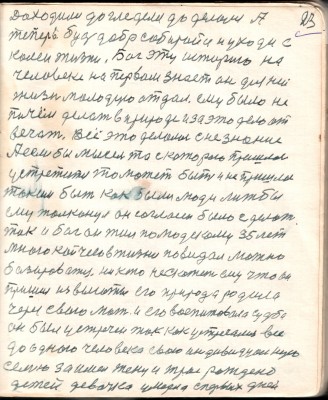 23
доходили до гледели до делам А
теперь буду добр собирайся и уходи с
моей жизни, Бог эту историю на
человеке на первом знает он для ней
жизнь молодую отдал. ему было не
в природе и за это дело от
вечат. Всё это делалось с незнание
А если бы мысел та с которого пришлось
устретится то может быть и не пришлось
таким быть как были люди лиж бы
ему он согласен было сделат.
так и Бог он жил по людскому 35 лет
много кой чего в жизни повидал можно
никто не что он
пришел из высоты его природа родила
через свою мат. и его воспитовала судьба
он был устречен так как устречались все
до одного человека свою индивидуальную
семью заимел жену и трое рождено
детей девочка умерла с первых дней